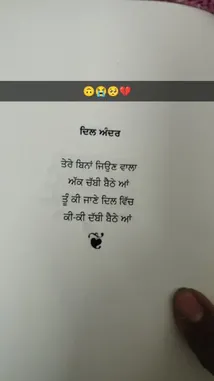 🙃😭🥺💔
ਦਿਲ ਅੰਦਰ
ਤੇਰੇ ਬਿਨਾਂ ਜਿਉਣ ਵਾਲਾ
ਅੱਕ ਚੱਬੀ ਬੈਠੇ ਆਂ
ਤੂੰ ਕੀ ਜਾਣੇ ਦਿਲ ਵਿੱਚ
ਕੀ-ਕੀ ਦੱਬੀ ਬੈਠੇ ਆਂ